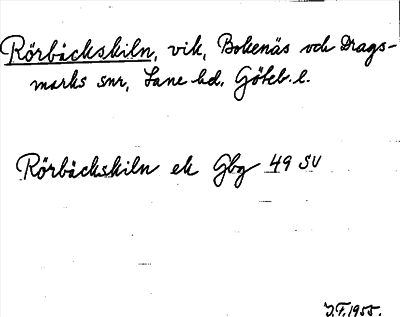 Rörbäckskiln, vik, Bokenäs och Drags-
marks snr, Lane hd, Göteb. l.
Rörbäckskiln ek Gbg 49 SV
J.F. 1955.